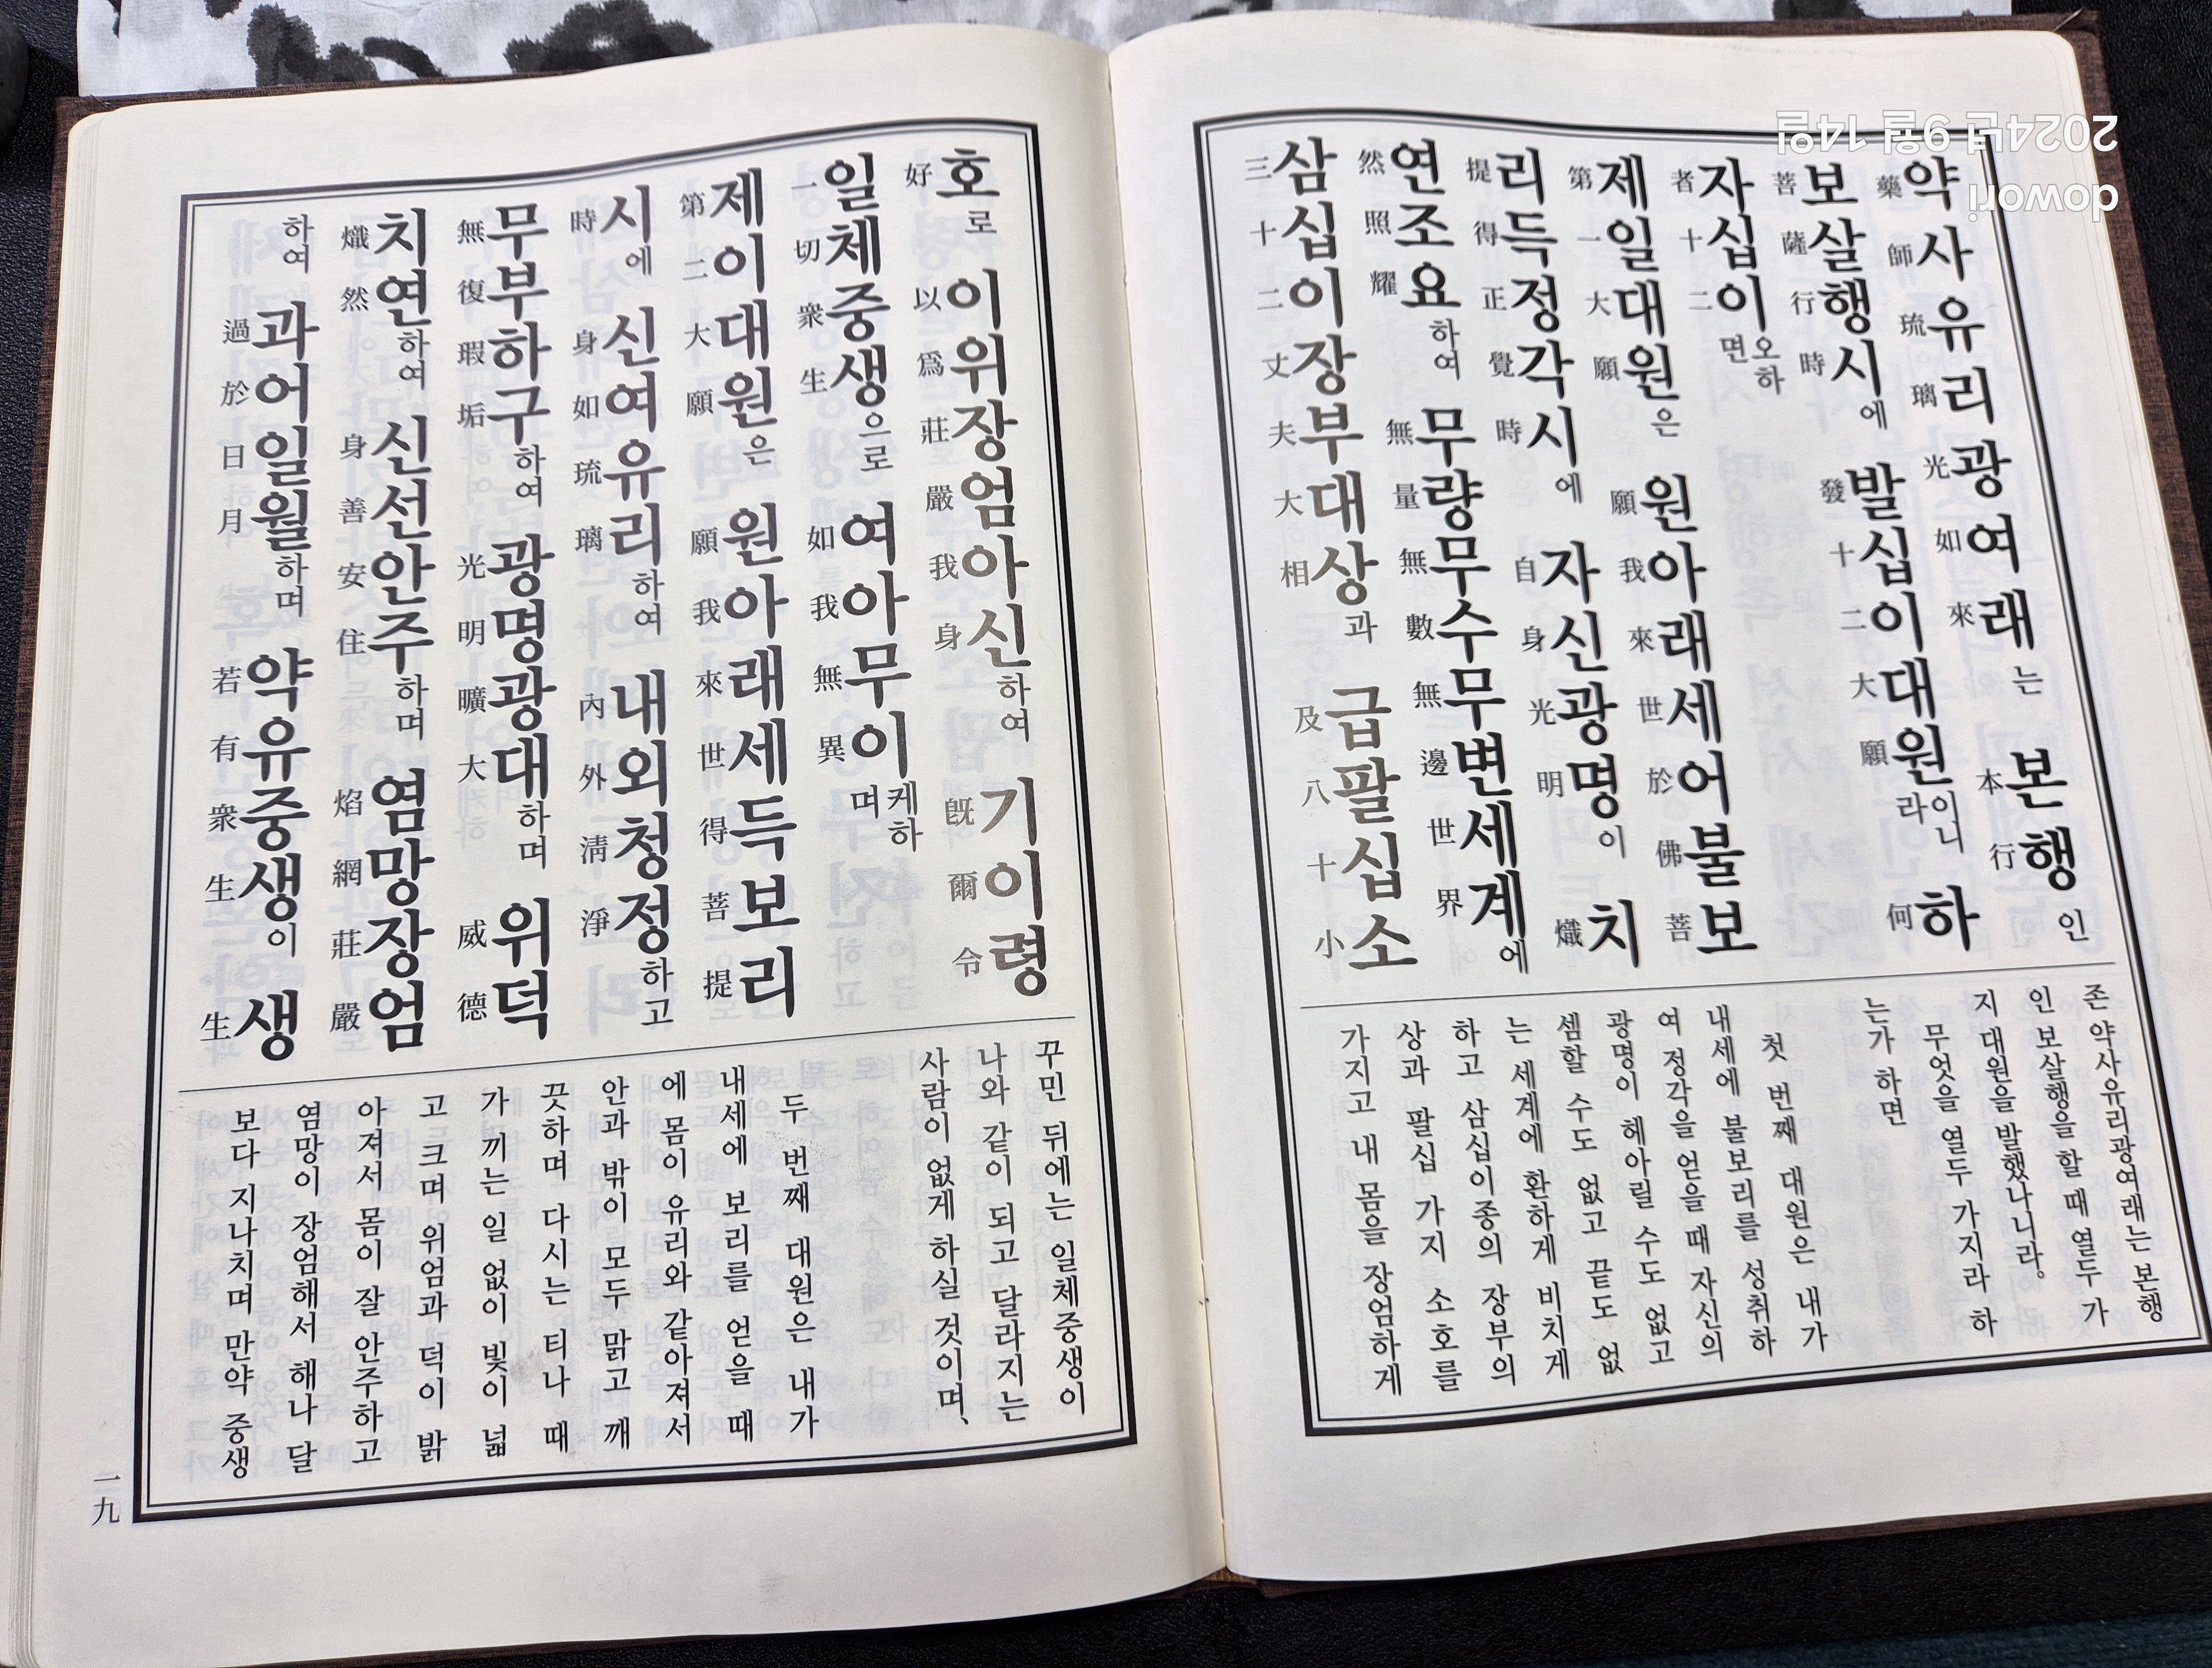 약사유리광여래는 본행인
藥師琉璃光如來 本行
보살행시에 발십이대원이니라 하
菩薩行時 發十二大願 何
자십이오하면
者十二
제일대원은 원아래세어불보
第一大願 願我來世於佛菩
리득정각시에 자신광명이 치
提得正覺時 自身光明 熾
연조요하여 무량무수무변세계에
然照耀 無量無數無邊世界
삼십이장부대상과 급팔십소
三十二丈夫大相 及八十小
존 약사유리광여래는 본행
인 보살행을 할 때 열두 가
지 대원을 발했나니라.
무엇을 열두 가지라 하
는가 하면
첫 번째 대원은 내가
내세에 불보리를 성취하
여 정각을 얻을 때 자신의
광명이 헤아릴 수도 없고
셈할 수도 없고 끝도 없
는 세계에 환하게 비치게
하고 삼십이종의 장부의
상과 팔십 가지 소호를
가지고 내 몸을 장엄하게
호로 이위장엄아신하여 기이령
好 以爲莊嚴我身 旣爾令
일체중생으로 여아무이케하며
一切衆生 如我無異
제이대원은 원아래세득보리
第二大願 願我來世得菩提
시에 신여유리하여 내외청정하고
時 身如琉璃 內外淸淨
무부하구하여 광명광대하며 위덕
無復瑕垢 光明曠大 威德
치연하여 신선안주하며 염망장엄
熾然 身善安住 焰網莊嚴
하여 과어일월하며 약유중생이 생
過於日月 若有衆生 生
꾸민 뒤에는 일체중생이
나와 같이 되고 달라지는
사람이 없게 하실 것이며,
두 번째 대원은 내가
내세에 보리를 얻을 때
에 몸이 유리와 같아져서
안과 밖이 모두 맑고 깨
끗하며 다시는 티나 때
가 끼는 일 없이 빛이 넓
고 크며 위엄과 덕이 밝
아져서 몸이 잘 안주하고
염망이 장엄해서 해나 달
보다 지나치며 만약 중생
一九
dowori
2024년 9월 14일